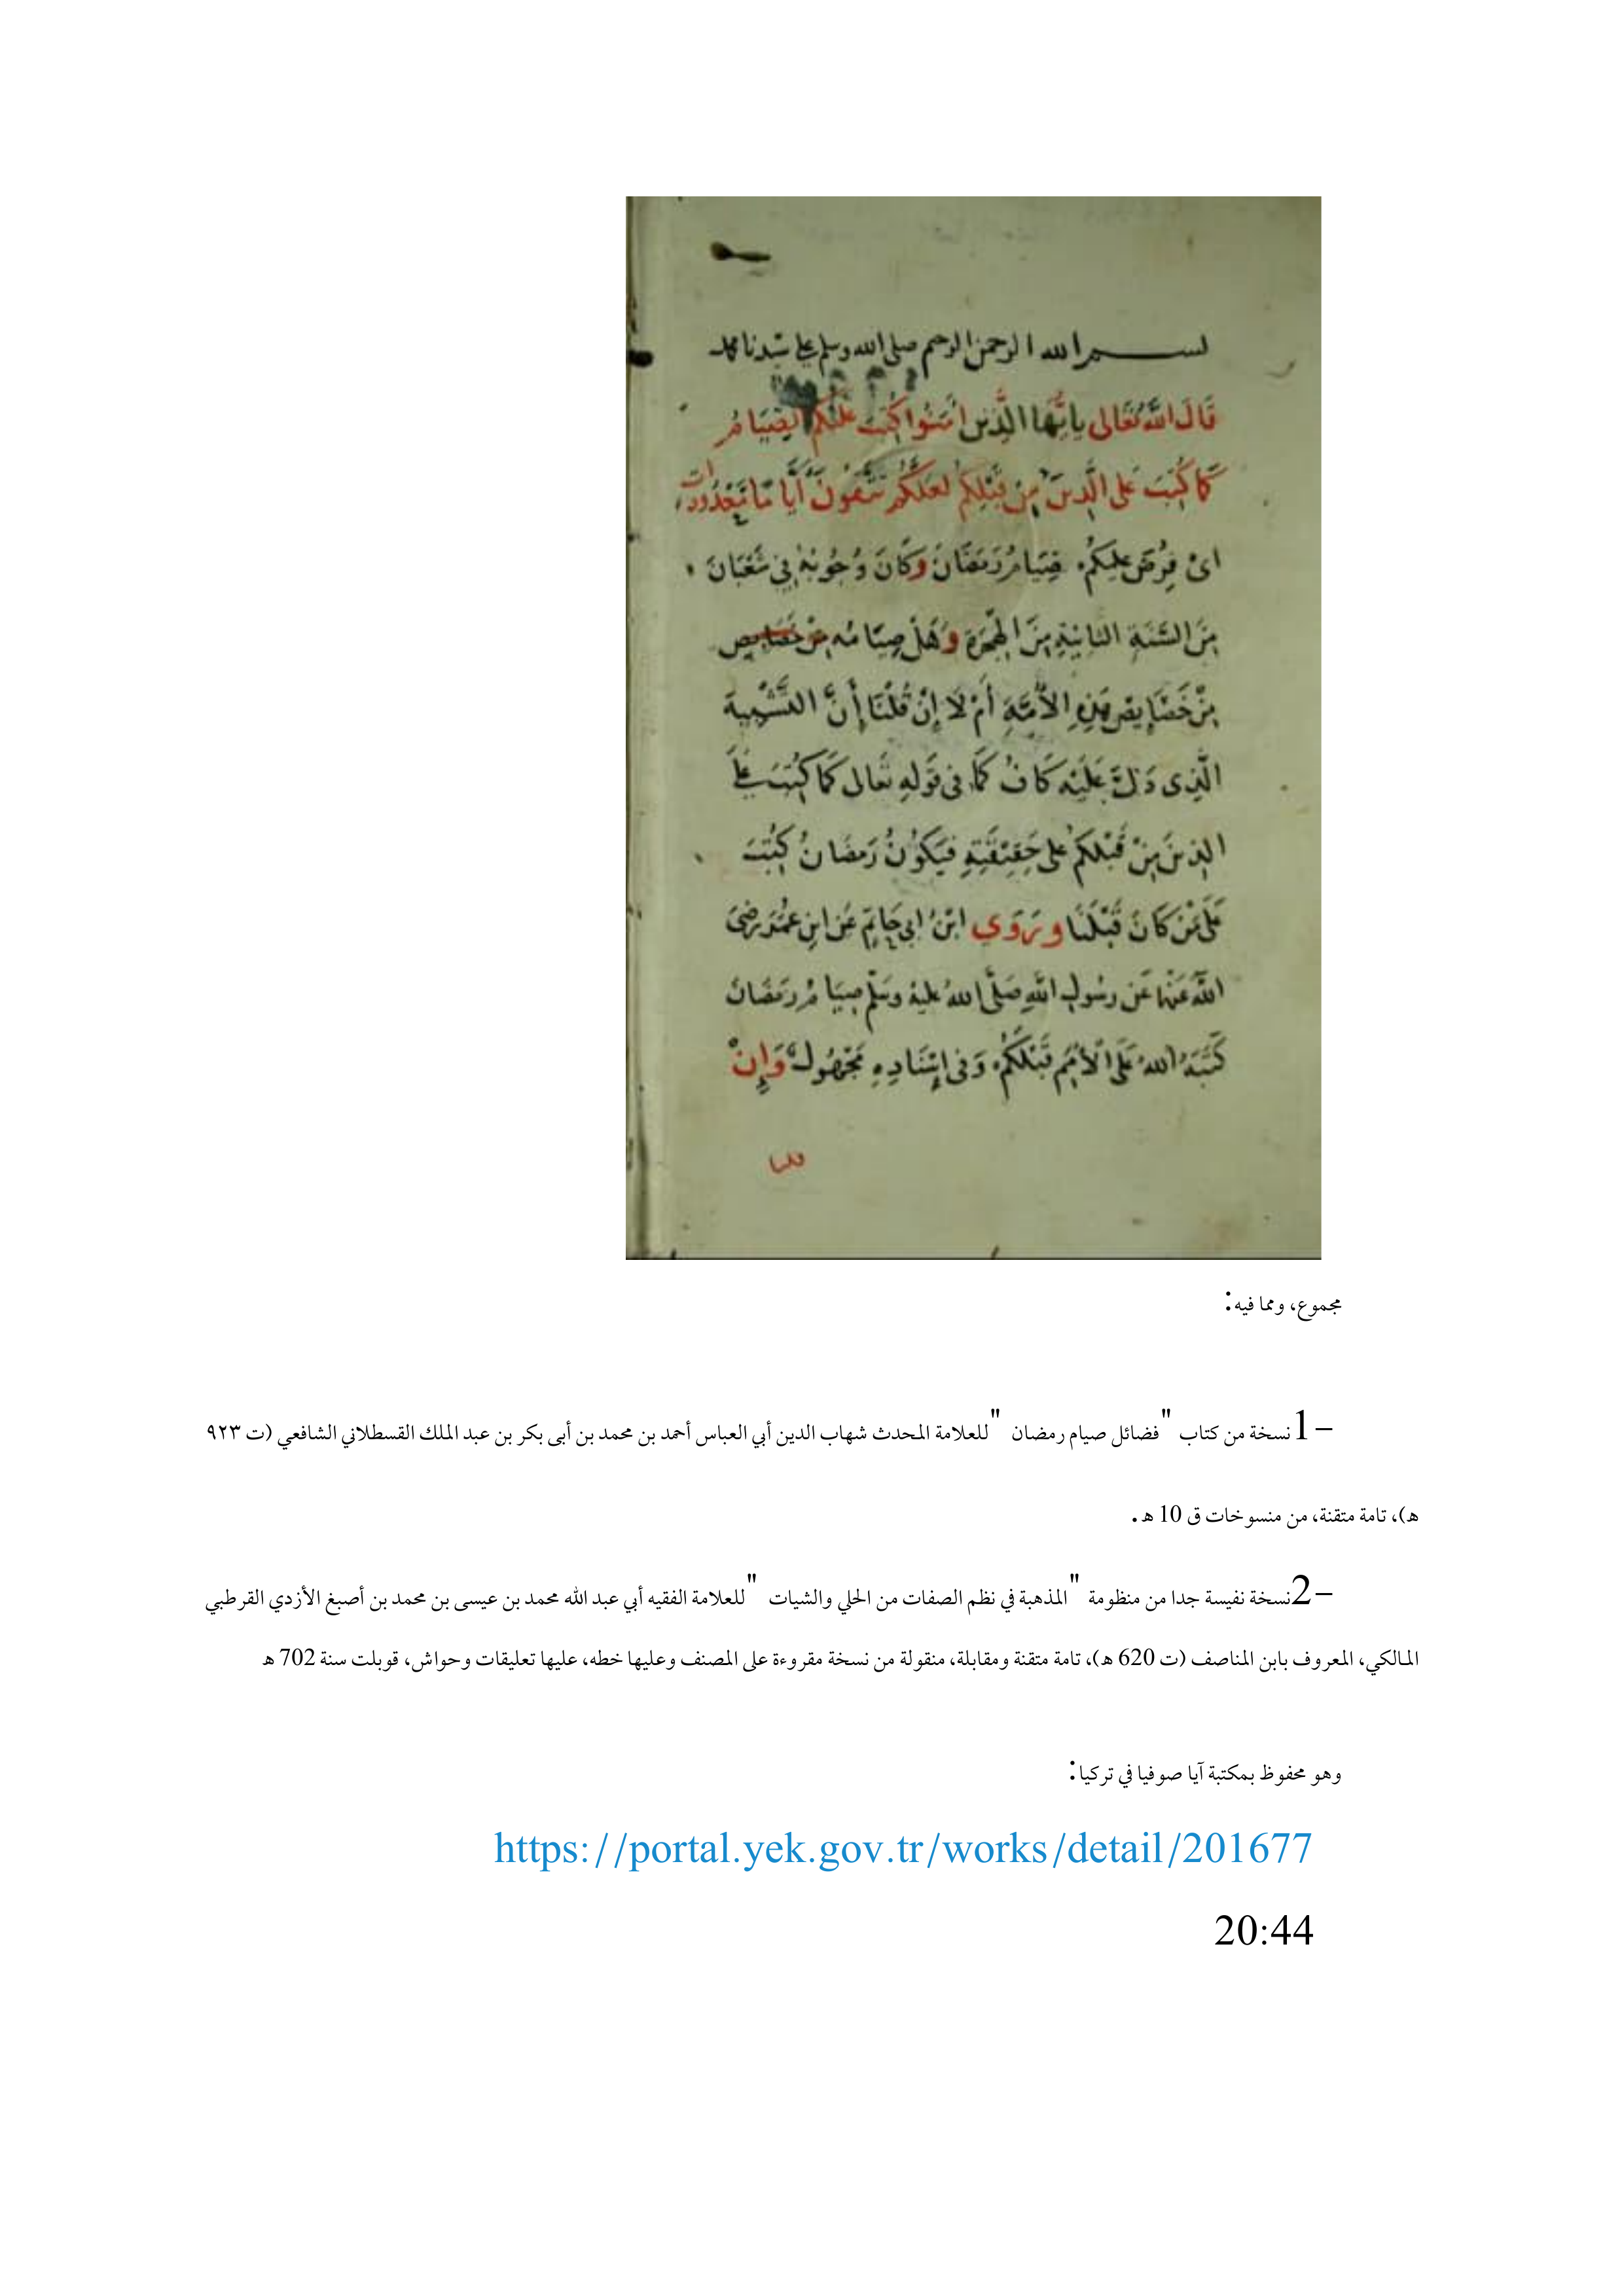 بســـم الله الرحمن الرحيم صلى الله وسلم على سيدنا محمد
قَالَ اللهُ تَعَالى يَا أيُّهَا الَّذِينَ امَنُوا كُتِبَ عَلَيْكُم الصِّيَامُ
كَمَا كُتِبَ عَلى الَّذِينَ مِن قَبْلِكُم لَعَلَّكُم تَتَّقُونَ أيَّامًا مَّعْدُودَات
اىْ فُرِضَ عَليكُم صِيَامُ رَمَضَانَ وَكَانَ وُجُوبُهُ فِي شَعْبَانَ
مِنَ السَّنَةِ الثانِيَةِ مِنَ الهِجْرَةِ وَهَلْ صِيَامُه مِنْ خَصَايِص
مِنْ خَصَايِصِ هَذِهِ الأُمَّةِ أَمْ لَا إنْ قُلْنَا إنَّ التَّشْبِيهَ
الَّذِى دَلَّ عَلَيْه كَافُ كَمَا فى قَوْلِهِ تَعَالى كَمَا كُتِبَ عَلَى
الذِينَ مِنْ قَبْلِكُم عَلى حَقِيْقَتِهِ فَيَكُونُ رَمَضَانُ كُتِبَ
عَلَى مَنْ كَانَ قَبْلَنَا وَرَوَى ابْنُ ابى حَاتِمٍ عَن ابنِ عُمَرَ رَضىَ
اللهُ عَنْهما عَن رسُولِ اللهِ صَلَّى اللهُ عليهِ وسَلَّم صِيَامُ رَمَضَانَ
كَتَبَهُ اللهُ عَلَى الأُمَمِ قَبْلَكُم وَفى إسْنَادِهِ مَجْهُولٌ وَإِنْ
قلنا
مجموع، ومما فيه:
1- نسخة من كتاب "فضائل صيام رمضان" للعلامة المحدث شهاب الدين أبي العباس أحمد بن محمد بن أبى بكر بن عبد الملك القسطلاني الشافعي (ت ٩٢٣
هـ)، تامة متقنة، من منسوخات ق 10 هـ.
2- نسخة نفيسة جدا من منظومة "المذهبة في نظم الصفات من الحلي والشيات" للعلامة الفقيه أبي عبد الله محمد بن عيسى بن محمد بن أصبغ الأزدي القرطبي
المالكي، المعروف بابن المناصف (ت 620 هـ)، تامة متقنة ومقابلة، منقولة من نسخة مقروءة على المصنف وعليها خطه، عليها تعليقات وحواش، قوبلت سنة 702 هـ
وهو محفوظ بمكتبة آيا صوفيا في تركيا:
https://portal.yek.gov.tr/works/detail/201677
20:44